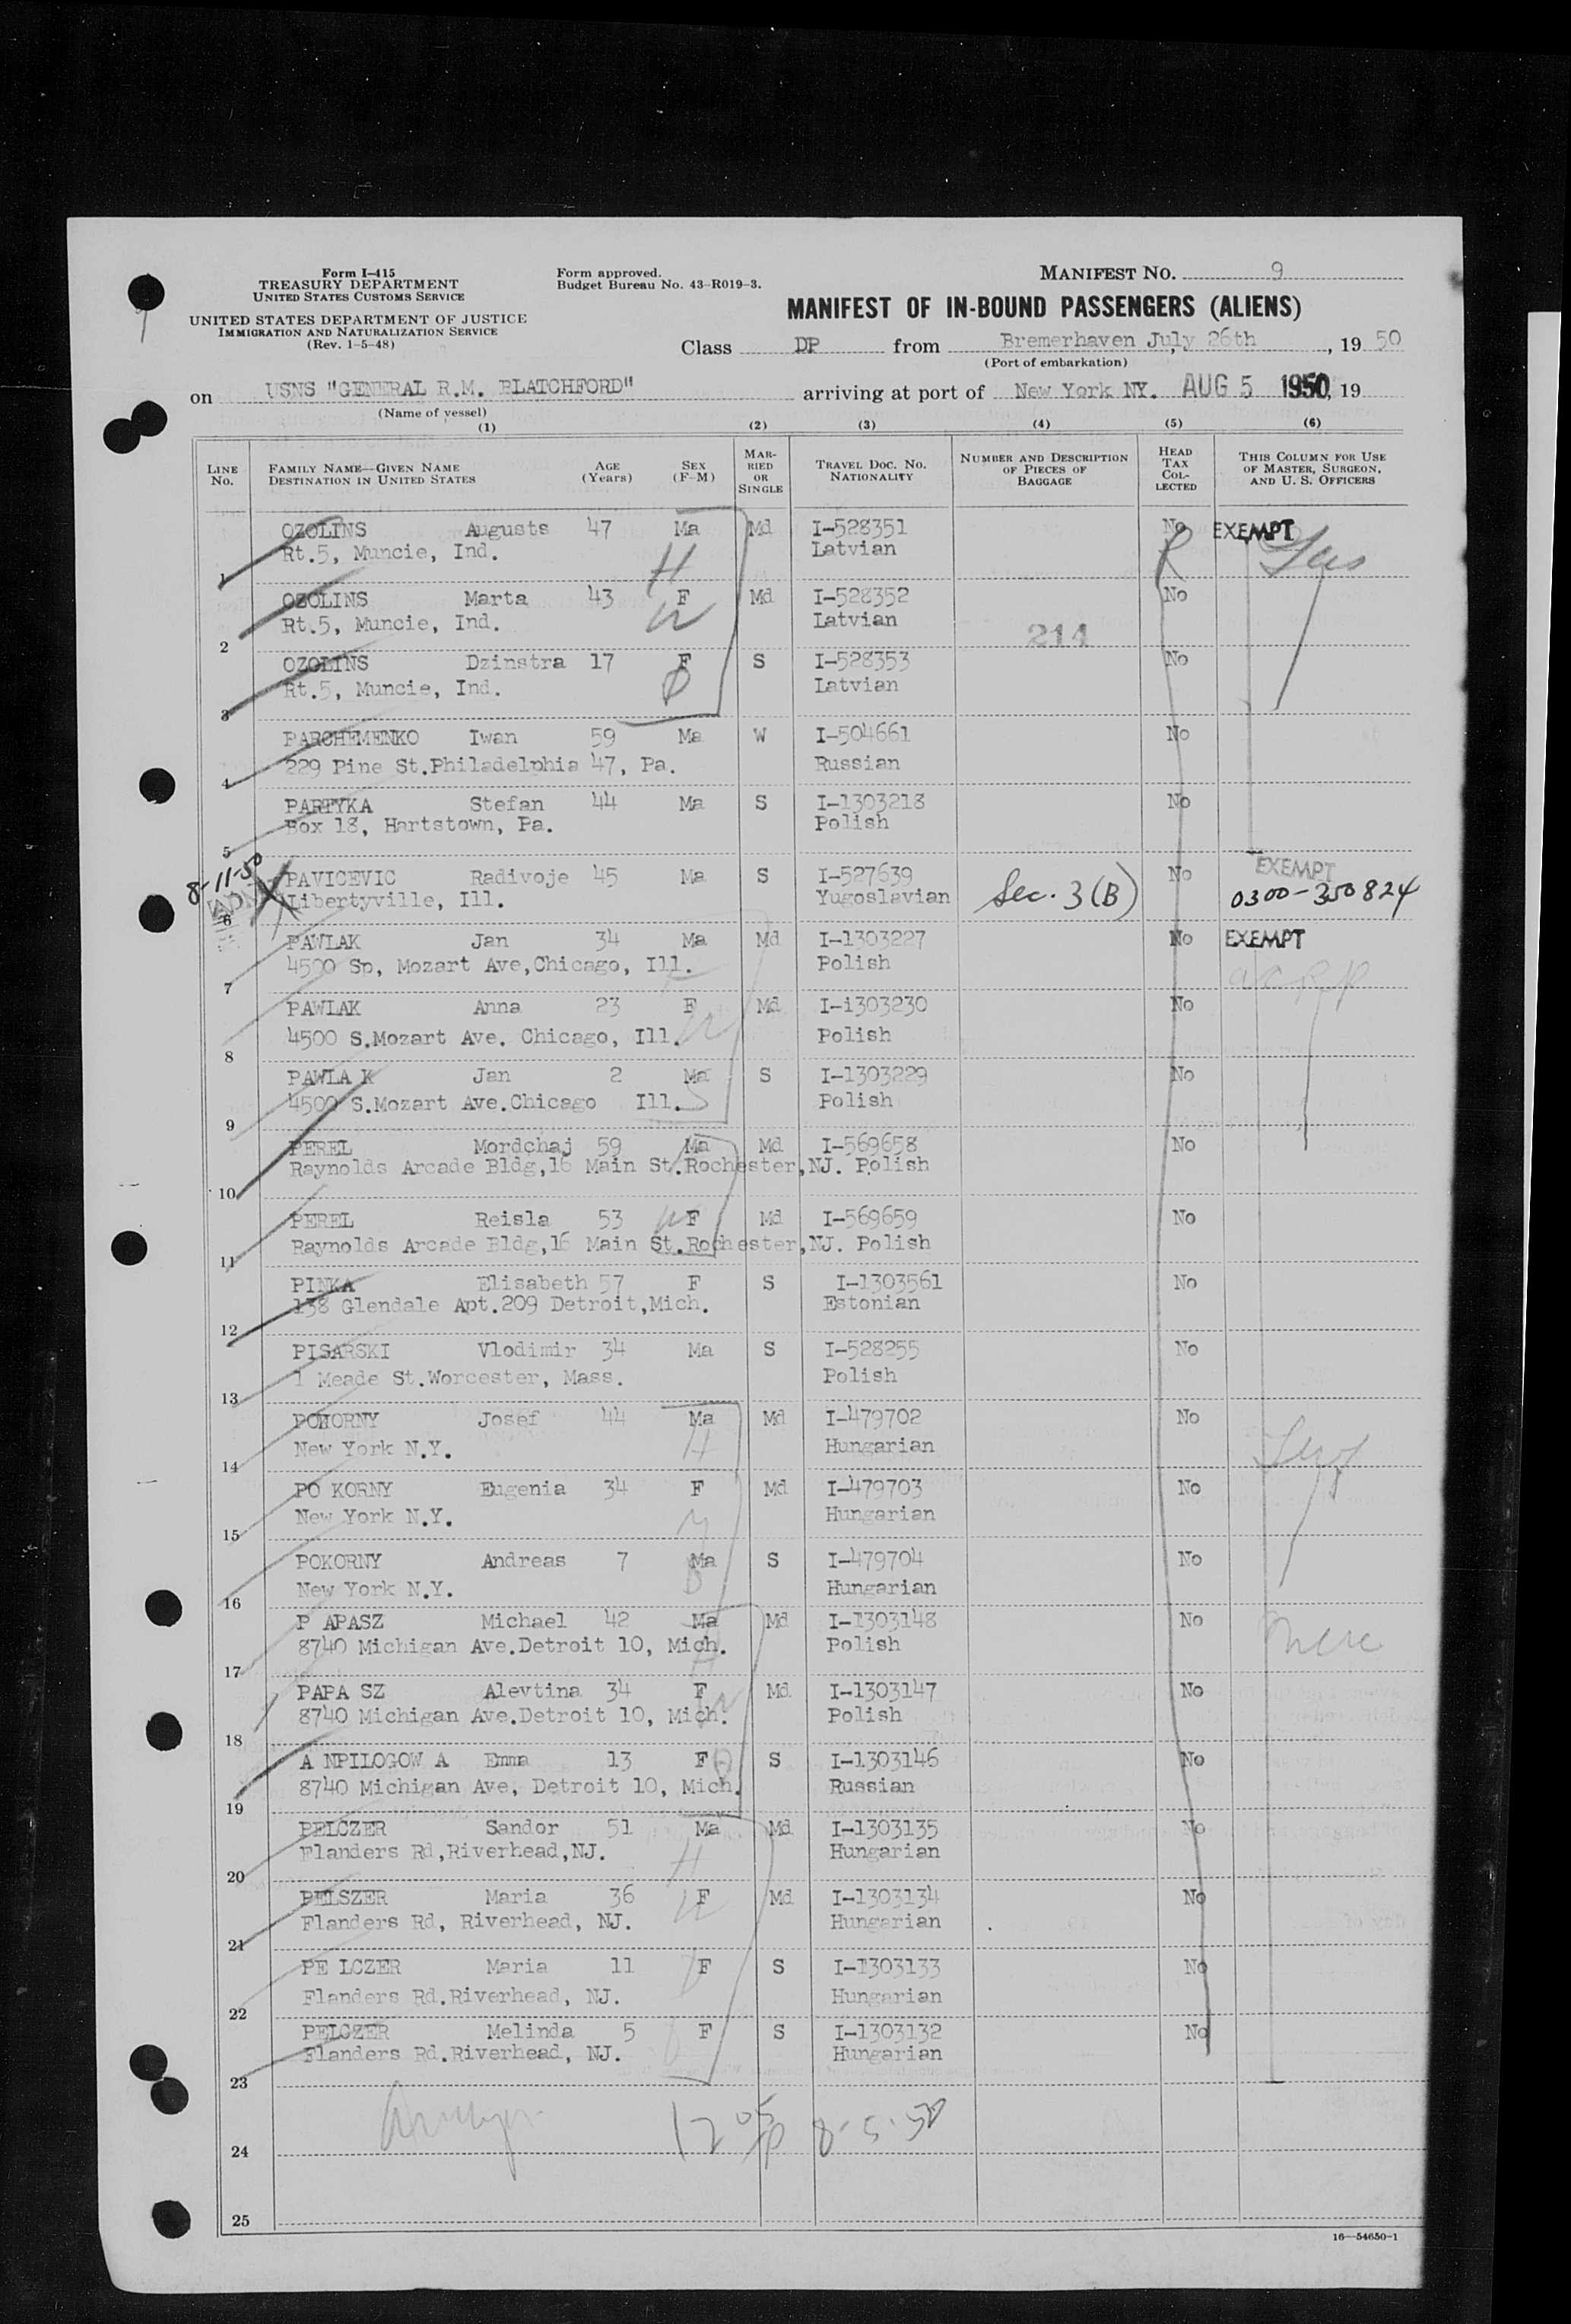 Form I-415
TREASURY DEPARTMENT
UNITED STATES CUSTOMS SERVICE
UNITED STATES DEPARTMENT OF JUSTICE
IMMIGRATION AND NATURALIZATION SERVICE
(Rev. 1-5-48)
Form approved.
Budget Bureau No. 43-R019-3.
MANIFEST NO. 9
MANIFEST OF IN-BOUND PASSENGERS (ALIENS)
Class DP from Bremerhaven July 26th, 19 50
(Port of embarkation)
on USNS "GENERAL R.M. BLATCHFORD" arriving at port of New York NY. AUG 5 1950, 19
(Name of vessel)
(1) (2) (3) (4) (5) (6)
LINE No. FAMILY NAME—GIVEN NAME DESTINATION IN UNITED STATES AGE (Years) SEX (F-M) MARRIED OR SINGLE TRAVEL DOC. NO. NATIONALITY NUMBER AND DESCRIPTION OF PIECES OF BAGGAGE HEAD TAX COLLECTED THIS COLUMN FOR USE OF MASTER, SURGEON, AND U. S. OFFICERS
OZOLINS Augusts 47 Ma Md I-528351 No EXEMPT
Rt.5, Muncie, Ind. H Latvian R
1
OZOLINS Marta 43 F Md I-528352 No
Rt.5, Muncie, Ind. W Latvian 214
2
OZOLINS Dzinstra 17 F S I-528353 No
Rt.5, Muncie, Ind. Latvian
3
PARCHEMENKO Iwan 59 Ma W I-504661 No
229 Pine St.Philadelphia 47, Pa. Russian
4
PARTYKA Stefan 44 Ma S I-1303218 No
Box 18, Hartstown, Pa. Polish
5
8-11-50
PAVICEVIC Radivoje 45 Ma S I-527639 No EXEMPT
Libertyville, Ill. Yugoslavian Sec. 3(B) 0300-350824
6
PAWLAK Jan 34 Ma Md I-1303227 No EXEMPT
4500 So, Mozart Ave,Chicago, Ill. Polish
7
PAWLAK Anna 23 F Md I-i303230 No
4500 S.Mozart Ave. Chicago, Ill. W Polish
8
PAWLA K Jan 2 Ma S I-1303229 No
4500 S.Mozart Ave.Chicago Ill. S Polish
9
PEREL Mordchaj 59 Ma Md I-569658 No
Raynolds Arcade Bldg,16 Main St.Rochester,NJ. Polish
10
PEREL Reisla 53 W F Md I-569659 No
Raynolds Arcade Bldg,16 Main St.Rochester,NJ. Polish
11
PINKA Elisabeth 57 F S I-1303561 No
138 Glendale Apt.209 Detroit,Mich. Estonian
12
PISARSKI Vlodimir 34 Ma S I-528255 No
1 Meade St.Worcester, Mass. Polish
13
POKORNY Josef 44 Ma Md I-479702 No
New York N.Y. H Hungarian
14
PO KORNY Eugenia 34 F Md I-479703 No
New York N.Y. Hungarian
15
POKORNY Andreas 7 Ma S I-479704 No
New York N.Y. Hungarian
16
P APASZ Michael 42 Ma Md I-1303148 No
8740 Michigan Ave.Detroit 10, Mich. Polish
17
PAPA SZ Alevtina 34 F Md I-1303147 No
8740 Michigan Ave.Detroit 10, Mich. Polish
18
A NPILOGOW A Emma 13 F S I-1303146 No
8740 Michigan Ave, Detroit 10, Mich. Russian
19
PELCZER Sandor 51 Ma Md I-1303135 No
Flanders Rd,Riverhead,NJ. H Hungarian
20
PELSZER Maria 36 F Md I-1303134 No
Flanders Rd, Riverhead, NJ. W Hungarian
21
PE LCZER Maria 11 F S I-1303133 No
Flanders Rd.Riverhead, NJ. Hungarian
22
PELCZER Melinda 5 F S I-1303132 No
Flanders Rd.Riverhead, NJ. Hungarian
23
12 05 P 8-5-50
24
25
16—54650-1